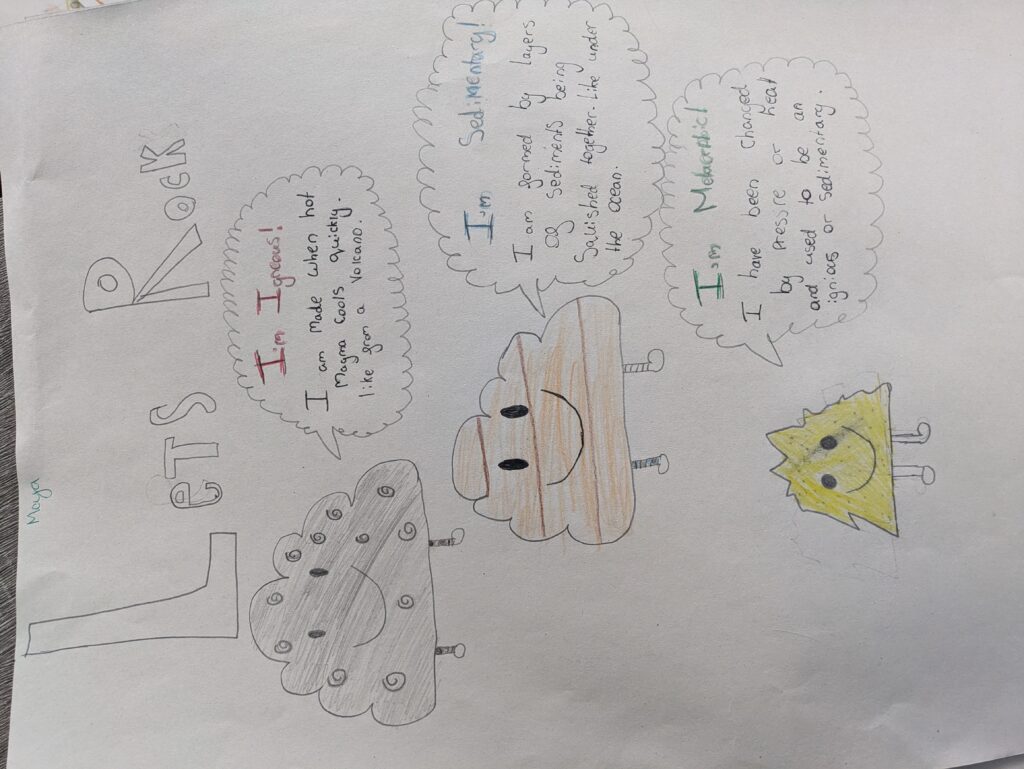 Maya
LETS ROCK
I'm Igneous!
I am made when hot
Magma cools quickly.
like from a Volcano.
I'm Sedimentary!
I am formed by layers
of Sediments being
Squished together. Like under
the ocean.
I'm Metamorphic!
I have been changed
by pressure or heat
and used to be an
ignias or sedimentary.